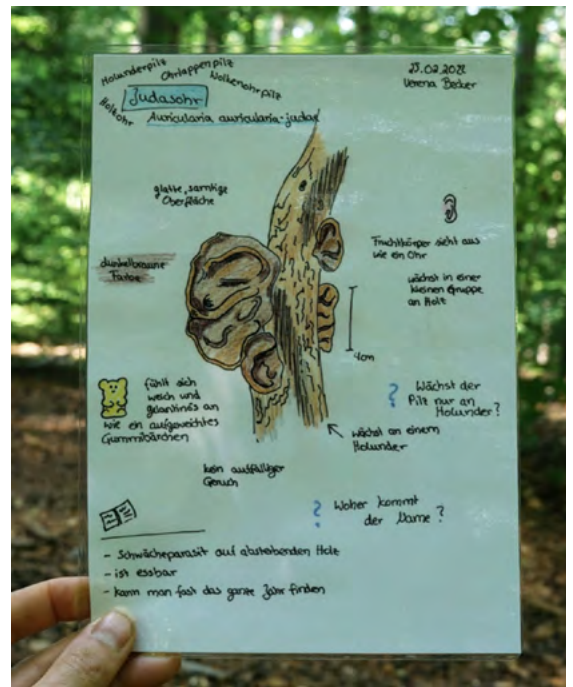 Holunderpilz
Ohrlappenpilz
Wolkenohrpilz
Holzohr
Judasohr
Auricularia auricularia-judae
23.02.2022
Verena Becker
glatte, samtige
Oberfläche
dunkelbraune
Farbe
Fruchtkörper sieht aus
wie ein Ohr
wächst in einer
kleinen Gruppe
an Holz
4cm
fühlt sich
weich und
gelantinös an
wie ein aufgeweichtes
Gummibärchen
? Wächst der
Pilz nur an
Holunder?
wächst an einem
Holunder
kein auffälliger
Geruch
? Woher kommt
der Name?
- Schwächeparasit auf absterbenden Holz
- ist essbar
- kann man fast das ganze Jahr finden